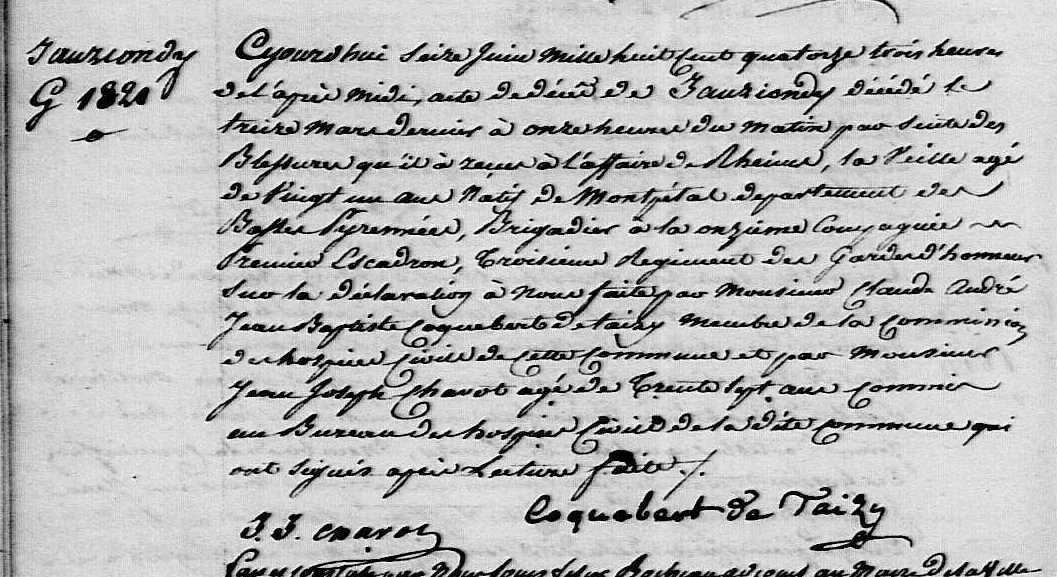 Jauziondy
G 1821
Cejourdhui Seize Juin Mille huit Cent quatorze trois heures
de l'après midi, acte de décès de Jauziondy décédé le
treize mars dernier à onze heures du matin par suite des
Blessures qu'il à reçues à l'affaire de Rheims, la Veille agé
de Vingt un ans Natif de Montpétat departement des
Basses Pyrennées, Brigadier à la onzième Compagnie
Premier Escadron, Troisieme Regiment des Gardes d'honneur
Sur la déclaration à nous faite par Monsieur Claude André
Jean Baptiste Coquebert de taizy membre de la Commission
des hospices Civils de Cette Commune et par Monsieur
Jean Joseph Charot agé de Trente Sept ans Commis
au Bureau des hospices Civils de la dite Commune qui
ont signés après Lecture faite ./.
J. J. Charot
Coquebert de Taizy